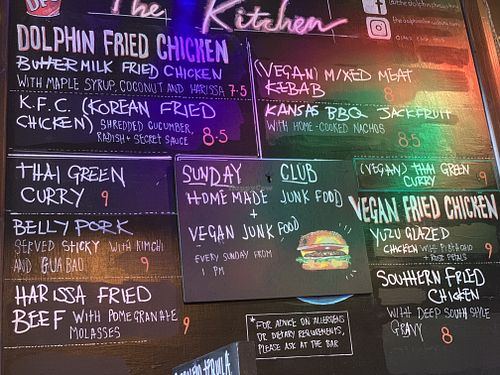 The Kitchen
DFC
DOLPHIN FRIED CHICKEN
BUTTERMILK FRIED CHICKEN
WITH MAPLE SYRUP, COCONUT AND HARISSA 7.5
K.F.C. (KOREAN FRIED
CHICKEN) SHREDDED CUCUMBER,
RADISH + SECRET SAUCE 8.5
(VEGAN) MIXED MEAT
KEBAB 8
KANSAS BBQ JACKFRUIT
WITH HOME-COOKED NACHOS
8.5
THAI GREEN
CURRY 9
BELLY PORK
SERVED STICKY WITH KIMCHI
AND GUA BAO 9
HARISSA FRIED
BEEF WITH POMEGRANATE 9
MOLASSES
SUNDAY CLUB
HOMEMADE JUNK FOOD
+
VEGAN JUNK FOOD
EVERY SUNDAY FROM
1 PM
*FOR ADVICE ON ALLERGENS
OR DIETARY REQUIREMENTS,
PLEASE ASK AT THE BAR
(VEGAN) THAI GREEN
CURRY 9
VEGAN FRIED CHICKEN
YUZU GLAZED
CHICKEN WITH PISTACHIO
+ ROSE PETALS
9
SOUTHERN FRIED
CHICKEN
WITH DEEP SOUTH STYLE
GRAVY 8
TEQUILA